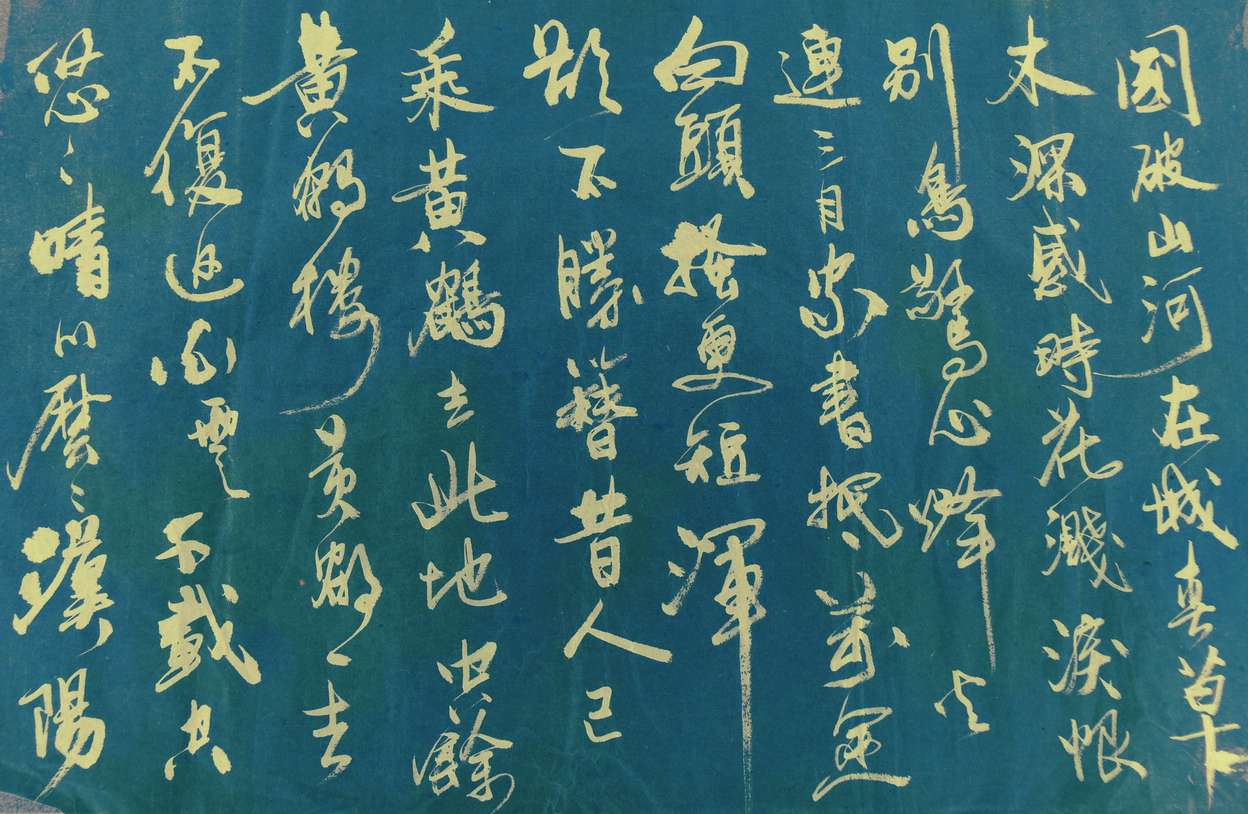 國破山河在城春草
木深感時花濺淚恨
別鳥驚心烽火
連三月家書抵萬金
白頭搔更短渾
欲不勝簪昔人已
乘黃鶴去此地空餘
黃鶴樓黃鶴一去
不復返白雲千載空
悠〻晴川歷〻漢陽